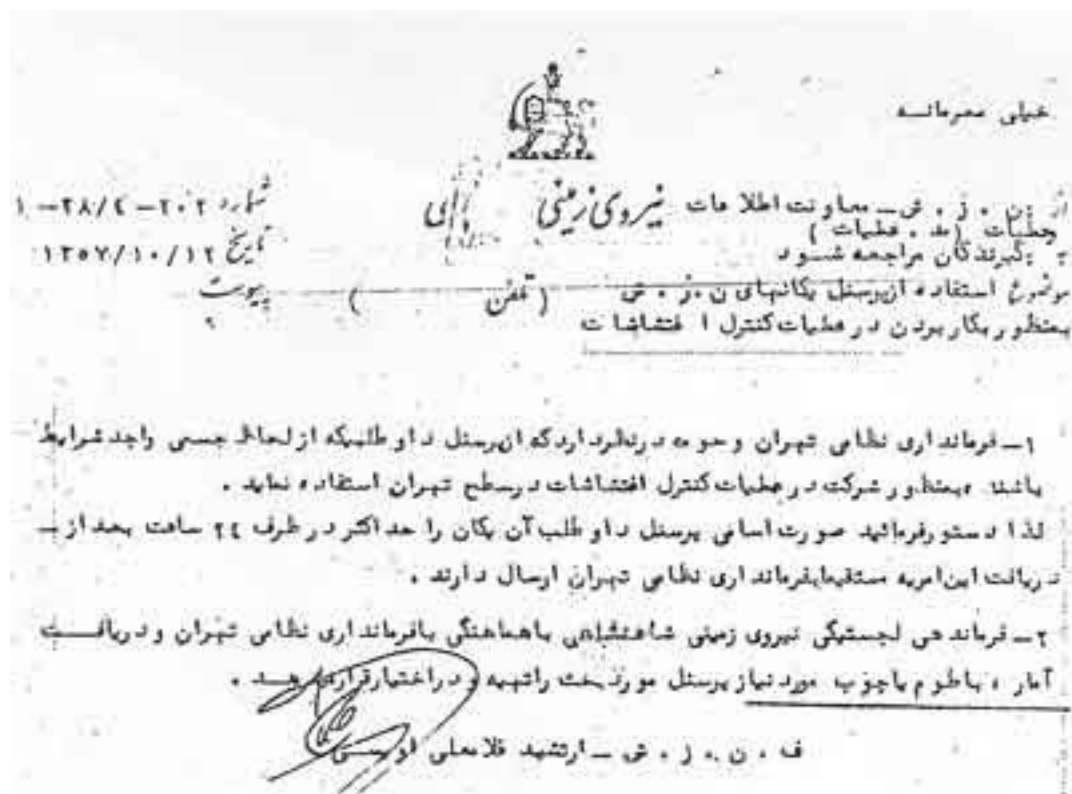 خیلی محرمانه
از ن . ز . ش ــ معاونت اطلاعات نیروی زمینی
شماره ۲۰۲-۲۸/٤-۱
عملیات ( مد . عملیات )
به گیرندگان مراجعه شود
تاریخ ۱۳۵۷/۱۰/۱۲
موضوع استفاده از پرسنل یکانهای ن . ز . ش ( تلفن ) پیوست
بمنظور بکار بردن در عملیات کنترل اغتشاشات
۱ــ فرمانداری نظامی تهران و حومه در نظر دارد که از پرسنل داوطلبیکه از لحاظ جسمی واجد شرایط
باشند ، بمنظور شرکت در عملیات کنترل اغتشاشات در سطح تهران استفاده نماید .
لذا دستور فرمائید صورت اسامی پرسنل داوطلب آن یکان را حداکثر در ظرف ۲٤ ساعت بعد از ــ
دریافت این امریه مستقیما بفرمانداری نظامی تهران ارسال دارند .
۲ــ فرماندهی لجستیکی نیروی زمینی شاهنشاهی با هماهنگی با فرمانداری نظامی تهران و دریافت
آمار ، باطوم یا چوب مورد نیاز پرسنل مورد بحث را تهیه و در اختیار قرار دهد .
ف . ن . ز . ش ــ ارتشبد غلامعلی اویسی